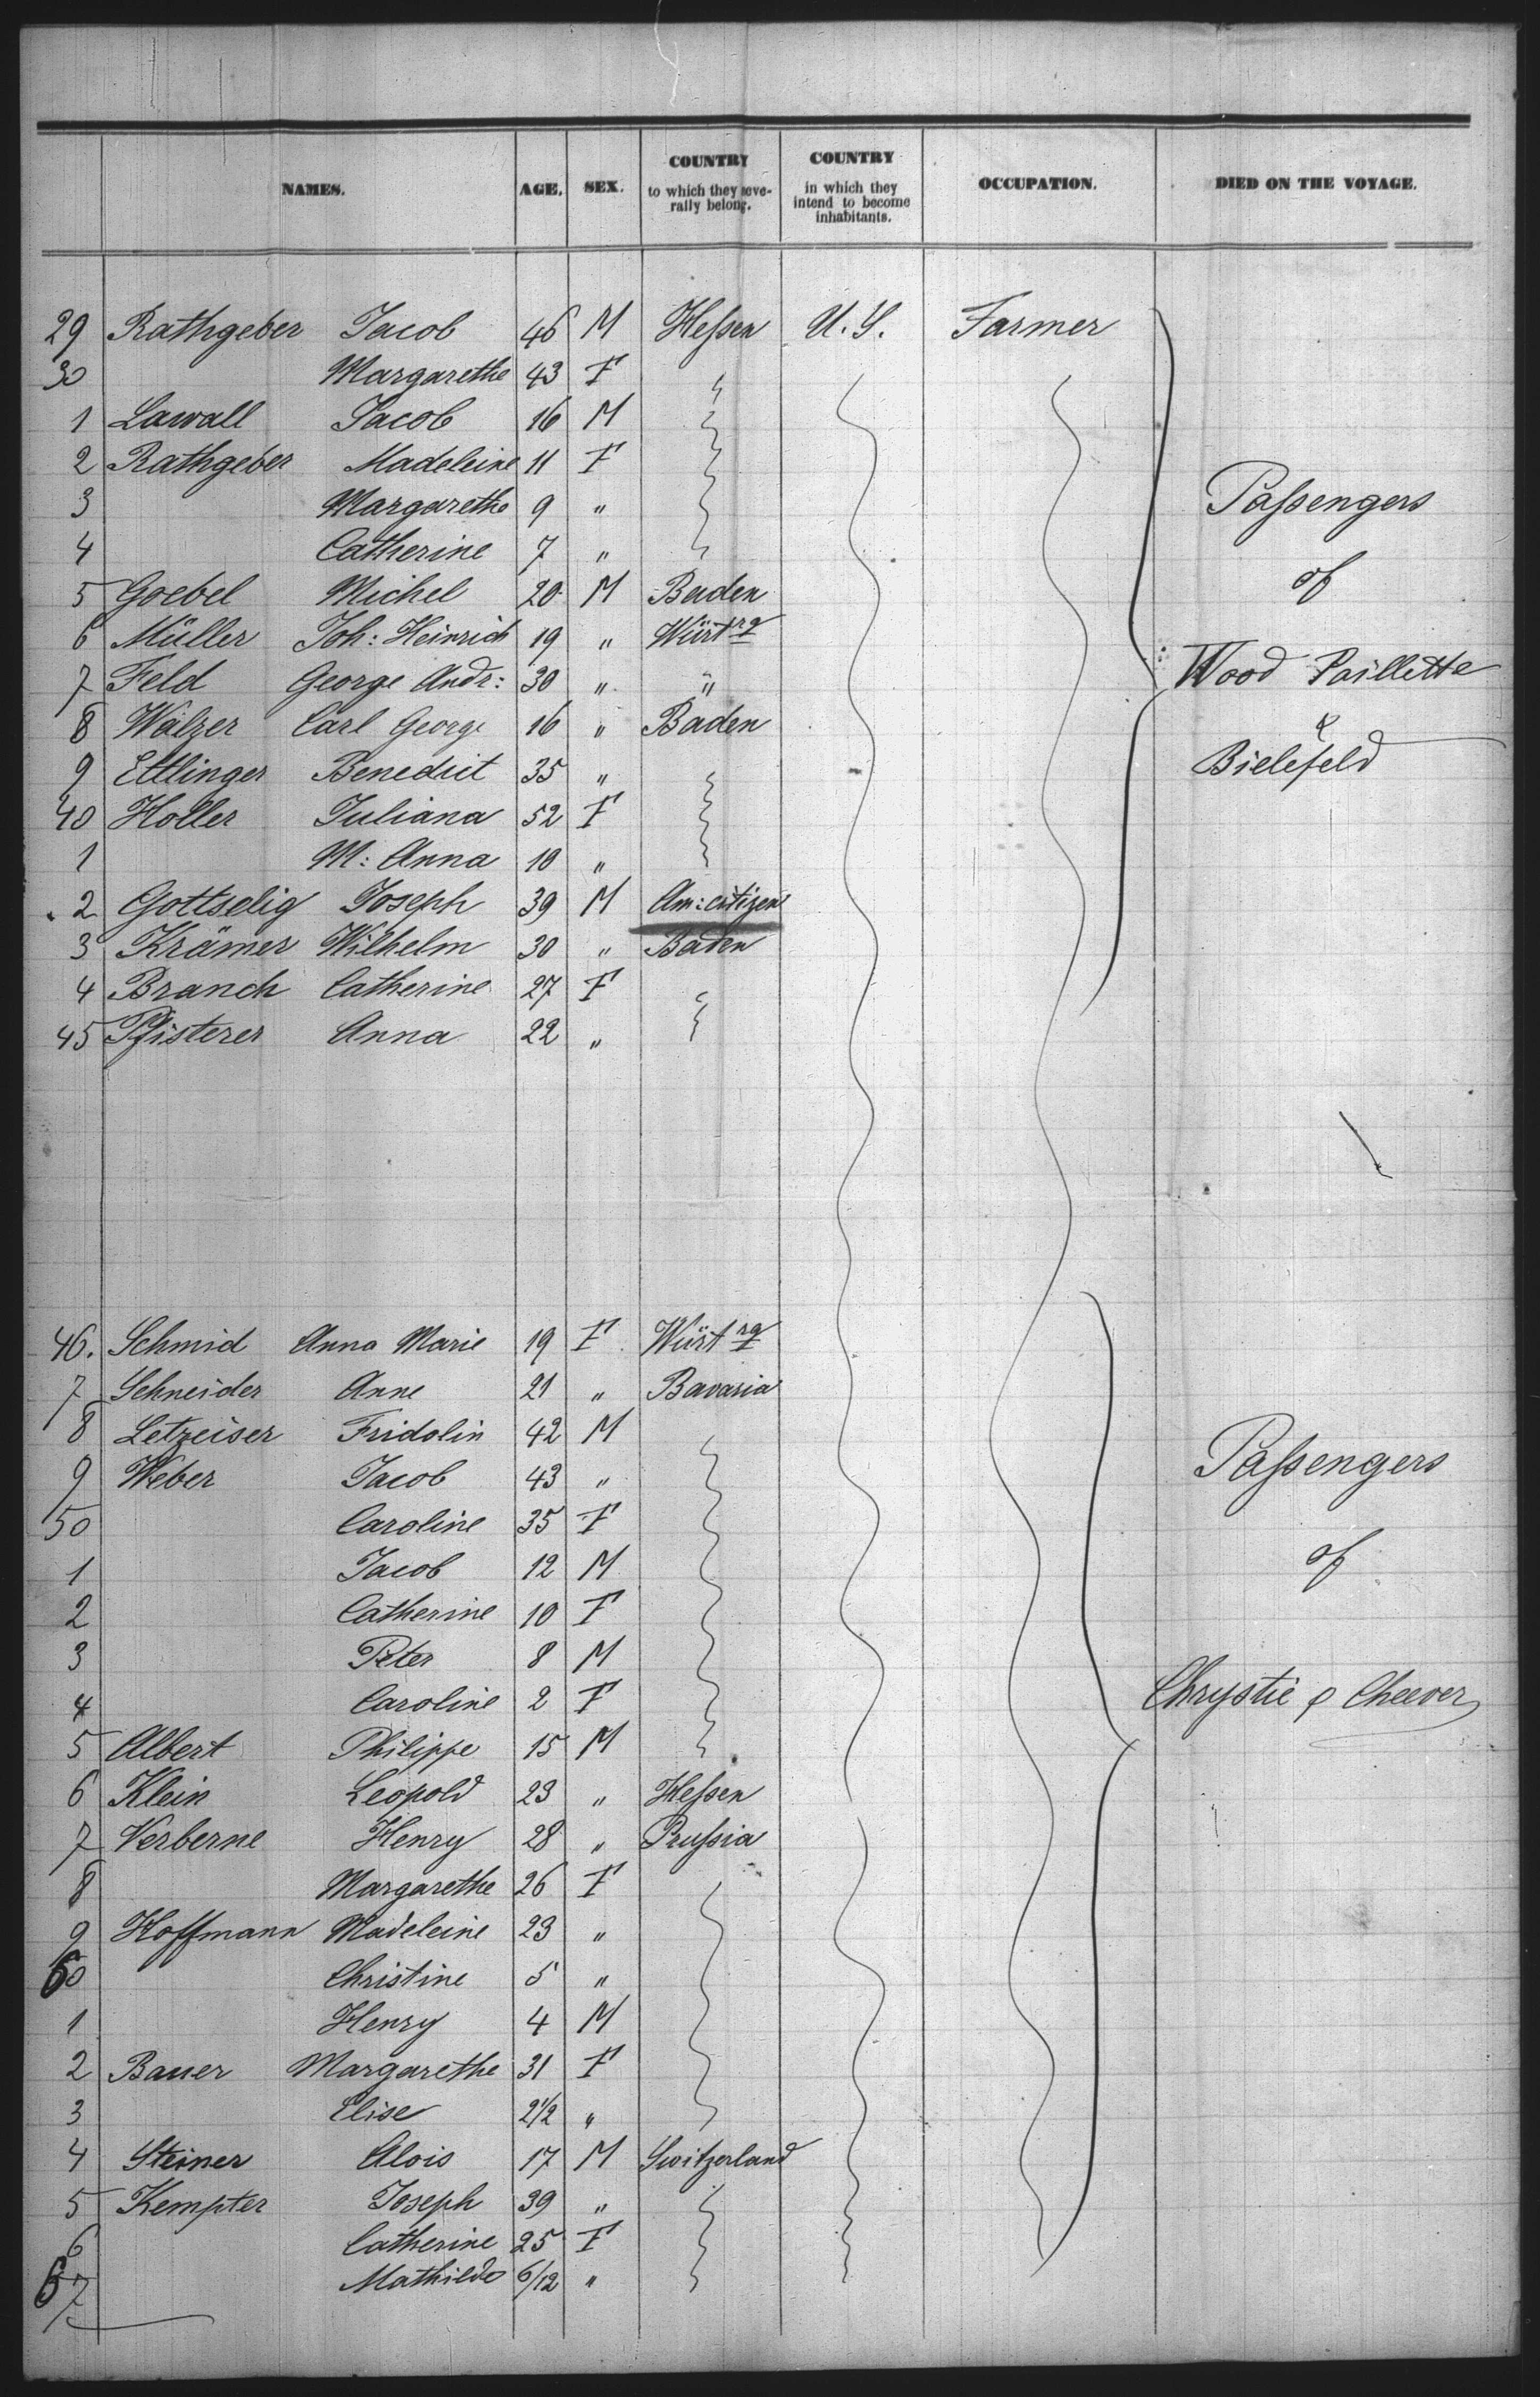 NAMES. AGE. SEX. COUNTRY to which they severally belong. COUNTRY in which they intend to become inhabitants. OCCUPATION. DIED ON THE VOYAGE.
29 Rathgeber Jacob 46 M Hessen U.S. Farmer
30 Margarethe 43 F
1 Lawall Jacob 16 M
2 Rathgeber Madeleine 11 F
3 Margarethe 9 " Passengers
4 Catherine 7 "
5 Goebel Michel 20 M Baden of
6 Müller Joh: Heinrich 19 " Würtrg
7 Feld George Andr: 30 " " Wood Paillette
8 Walzer Carl George 16 " Baden &
9 Ettlinger Benedict 35 " Bielefeld
40 Holler Juliana 52 F
1 M: Anna 10 "
2 Gottselig Joseph 39 M Am: citizen
3 Krämer Wilhelm 30 " Baden
4 Branch Catherine 27 F
45 Pfisterer Anna 22 "
46. Schmid Anna Marie 19 F Würtrg
7 Schneider Anne 21 " Bavaria
8 Letzeiser Fridolin 42 M
9 Weber Jacob 43 " Passengers
50 Caroline 35 F
1 Jacob 12 M of
2 Catherine 10 F
3 Peter 8 M
4 Caroline 2 F Chrystie & Cheever
5 Albert Philippe 15 M
6 Klein Leopold 23 " Hessen
7 Verberne Henry 28 " Prussia
8 Margarethe 26 F
9 Hoffmann Madeleine 23 "
60 Christine 5 "
1 Henry 4 M
2 Bauer Margarethe 31 F
3 Elise 2 1/2 "
4 Steiner Alois 17 M Switzerland
5 Kempter Joseph 39 "
6 Catherine 25 F
67 Mathilde 6/12 "